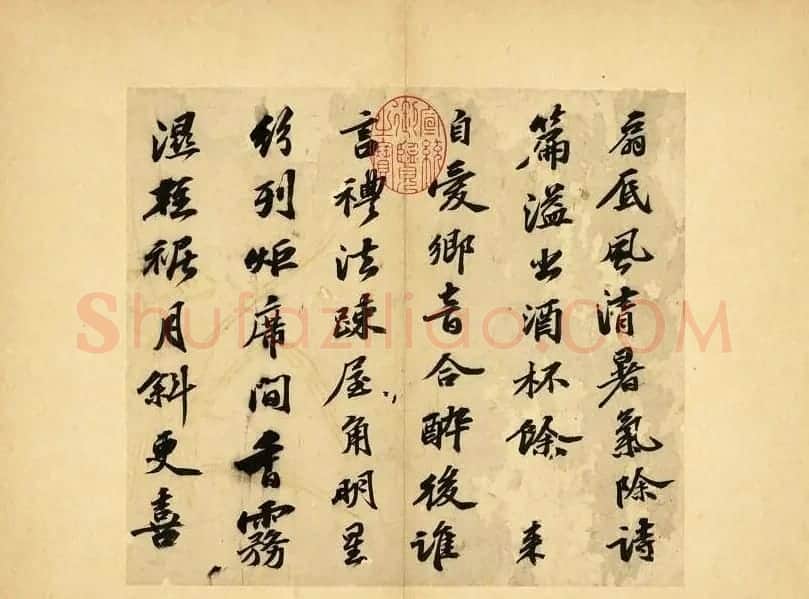 扇底風清暑氣除詩
篇溢出酒杯餘 来
自愛鄉音合醉後誰
言禮法疎屋角明星
紛列炬席間香霧
濕裾月斜更喜
宣統御覽之寶
Shufaziliao.COM